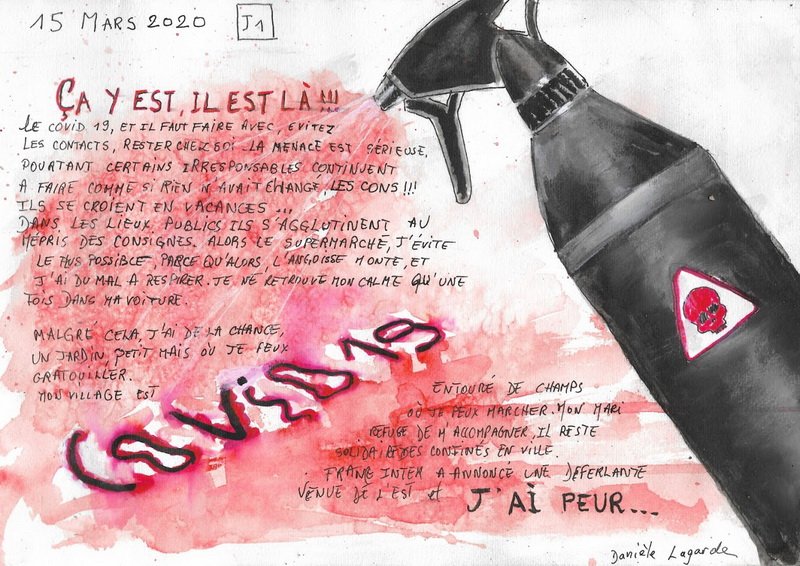 15 MARS 2020 J1
ÇA Y EST, IL EST LÀ !!!
LE COVID 19, ET IL FAUT FAIRE AVEC, EVITEZ
LES CONTACTS, RESTER CHEZ SOI. LA MENACE EST SÉRIEUSE,
POURTANT CERTAINS IRRESPONSABLES CONTINUENT
A FAIRE COMME SI RIEN N'AVAIT CHANGÉ, LES CONS !!!
ILS SE CROIENT EN VACANCES ...
DANS LES LIEUX PUBLICS ILS S'AGGLUTINENT AU
MÉPRIS DES CONSIGNES. ALORS LE SUPERMARCHÉ, J'ÉVITE
LE PLUS POSSIBLE, PARCE QU'ALORS, L'ANGOISSE MONTE, ET
J'AI DU MAL A RESPIRER. JE NE RETROUVE MON CALME QU'UNE
FOIS DANS MA VOITURE.
MALGRÉ CELA, J'AI DE LA CHANCE,
UN JARDIN, PETIT MAIS OÙ JE PEUX
GRATOUILLER.
MON VILLAGE EST
COVID 19
ENTOURÉ DE CHAMPS
OÙ JE PEUX MARCHER. MON MARI
REFUSE DE M'ACCOMPAGNER, IL RESTE
SOLIDAIRE DES CONFINÉS EN VILLE.
FRANCE INTER A ANNONCÉ UNE DÉFERLANTE
VENUE DE L'EST et J'AI PEUR...
Danièle Lagarde